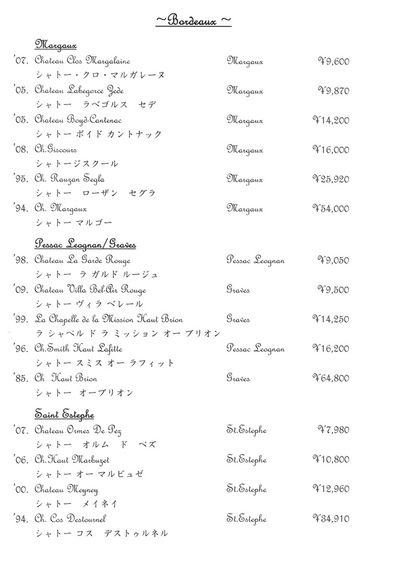 ~Bordeaux~
Margaux
'07. Chateau Clos Margalaine Margaux ¥9,600
シャトー・クロ・マルガレーヌ
'05. Chateau Labegorce Zede Margaux ¥9,870
シャトー ラベゴルス セデ
'05. Chateau Boyd-Cantenac Margaux ¥14,200
シャトー ボイド カントナック
'08. Ch.Giscours Margaux ¥16,000
シャトージスクール
'95. Ch. Rauzan Segla Margaux ¥25,920
シャトー ローザン セグラ
'94. Ch. Margaux Margaux ¥54,000
シャトー マルゴー
Pessac Leognan/Graves
'98. Chateau La Garde Rouge Pessac Leognan ¥9,050
シャトー ラ ガルド ルージュ
'09. Chateau Villa Bel-Air Rouge Graves ¥9,500
シャトー ヴィラ ベレール
'99. La Chapelle de la Mission Haut Brion Graves ¥14,250
ラ シャペル ド ラ ミッション オー ブリオン
'96. Ch.Smith Haut Lafitte Pessac Leognan ¥16,200
シャトー スミス オー ラフィット
'85. Ch Haut Brion Graves ¥64,800
シャトー オーブリオン
Saint Estephe
'07. Chateau Ormes De Pez St.Estephe ¥7,980
シャトー オルム ド ペズ
'06. Ch.Haut Marbuzet St.Estephe ¥10,800
シャトー オー マルビュゼ
'00. Chateau Meyney St.Estephe ¥12,960
シャトー メイネイ
'94. Ch. Cos Destournel St.Estephe ¥34,910
シャトー コス デストゥルネル